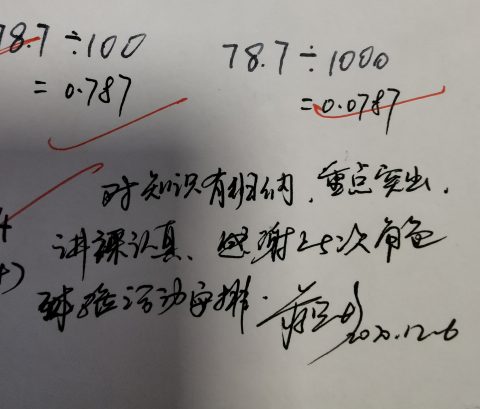 78.7÷100
=0.787
78.7÷1000
=0.0787
对知识有归纳，重点突出，
讲课认真、感谢 次角色
体验活动安排.
2020.12.6